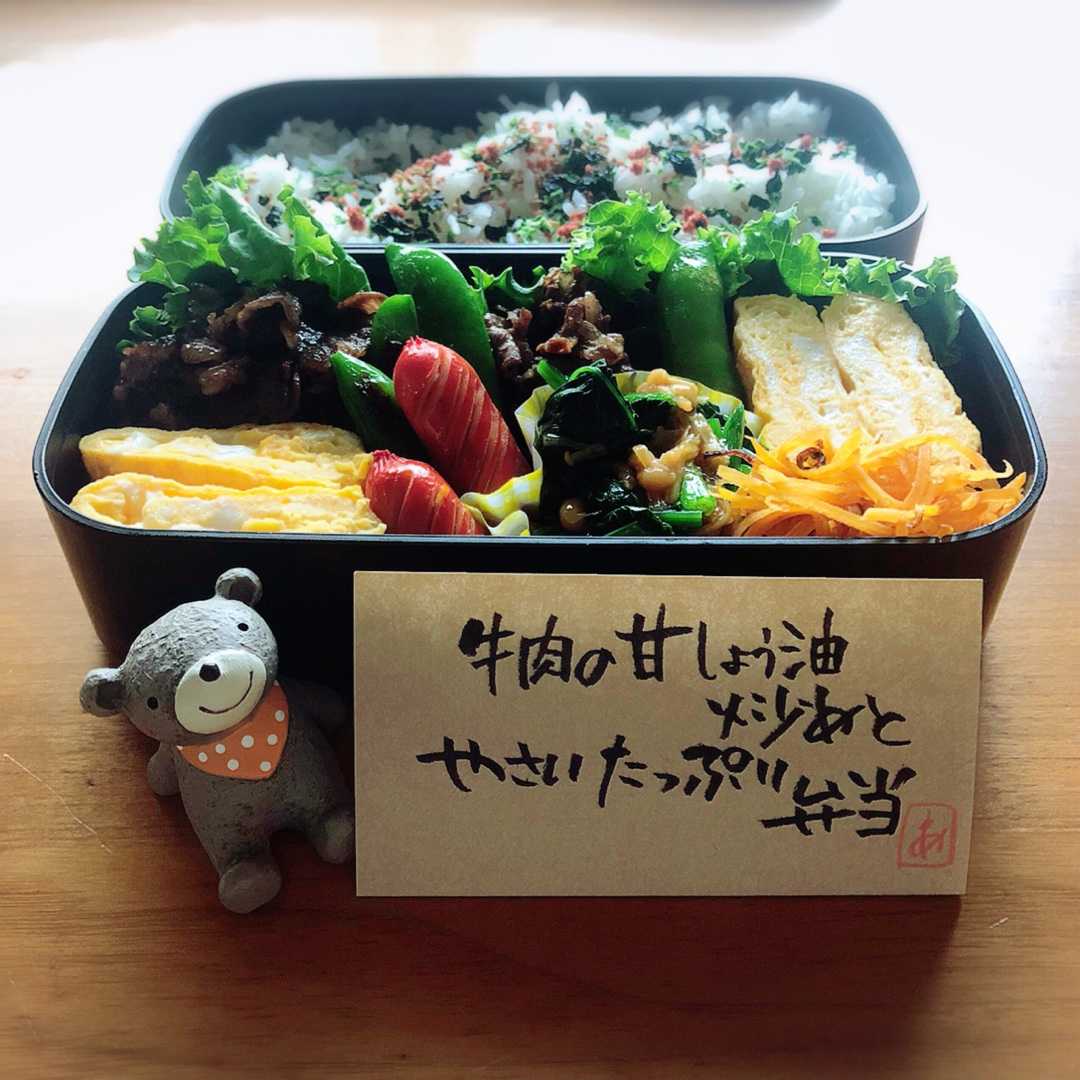 牛肉の甘しょう油
炒めと
やさいたっぷり
弁当
あ